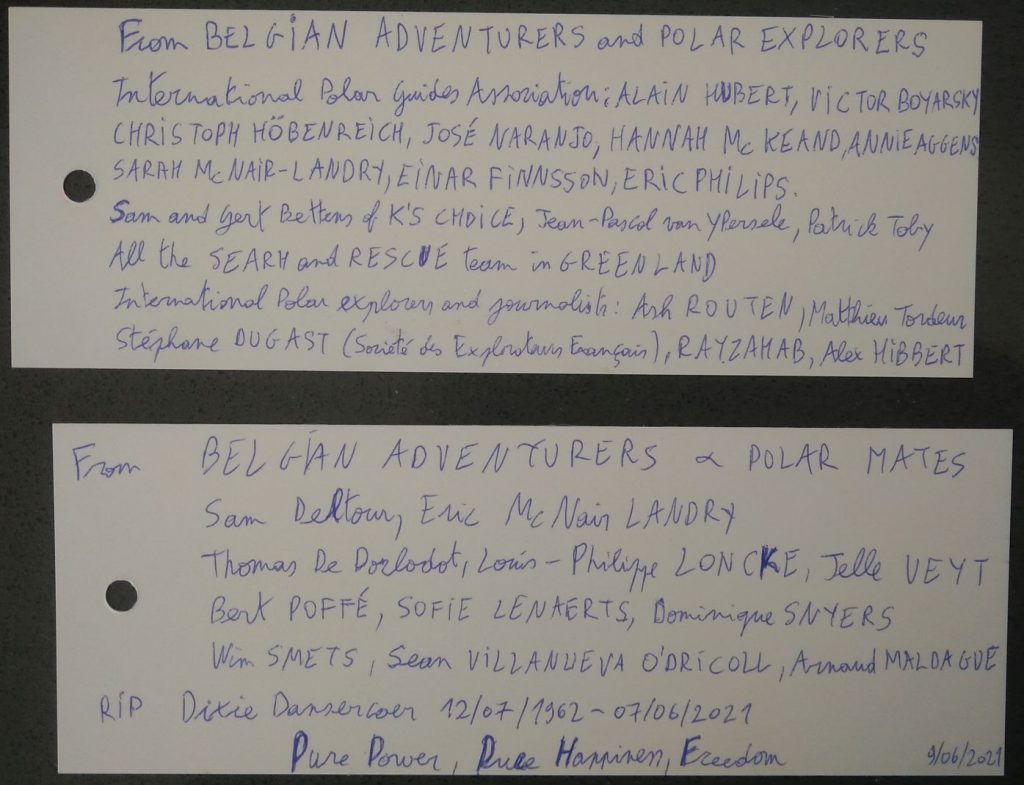 From BELGIAN ADVENTURERS and POLAR EXPLORERS
International Polar Guides Association: ALAIN HUBERT, VICTOR BOYARSKY
CHRISTOPH HÖBENREICH, JOSÉ NARANJO, HANNAH Mc KEAND, ANNIE AGGENS
SARAH McNAIR-LANDRY, EINAR FINNSSON, ERIC PHILIPS.
Sam and Gert Bettens of K'S CHOICE, Jean-Pascal van YPersele, Patrick Toby
All the SEARH and RESCUE team in GREENLAND
International Polar explorers and journalists: Ash ROUTEN, Matthieu Tordeur
Stéphane DUGAST (Société des Explorateurs Français), RAY ZAHAB, Alex HIBBERT
From BELGIAN ADVENTURERS & POLAR MATES
Sam Deltour, Eric McNair LANDRY
Thomas De Dorlodot, Louis-Philippe LONCKE, Jelle VEYT
Bert POFFÉ, SOFIE LENAERTS, Dominique SNYERS
Wim SMETS, Sean VILLANUEVA O'DRICOLL, Arnaud MALDAGUE
RIP Dixie Dansercoer 12/07/1962 - 07/06/2021
Pure Power, Pure Happiness, Freedom
9/06/2021